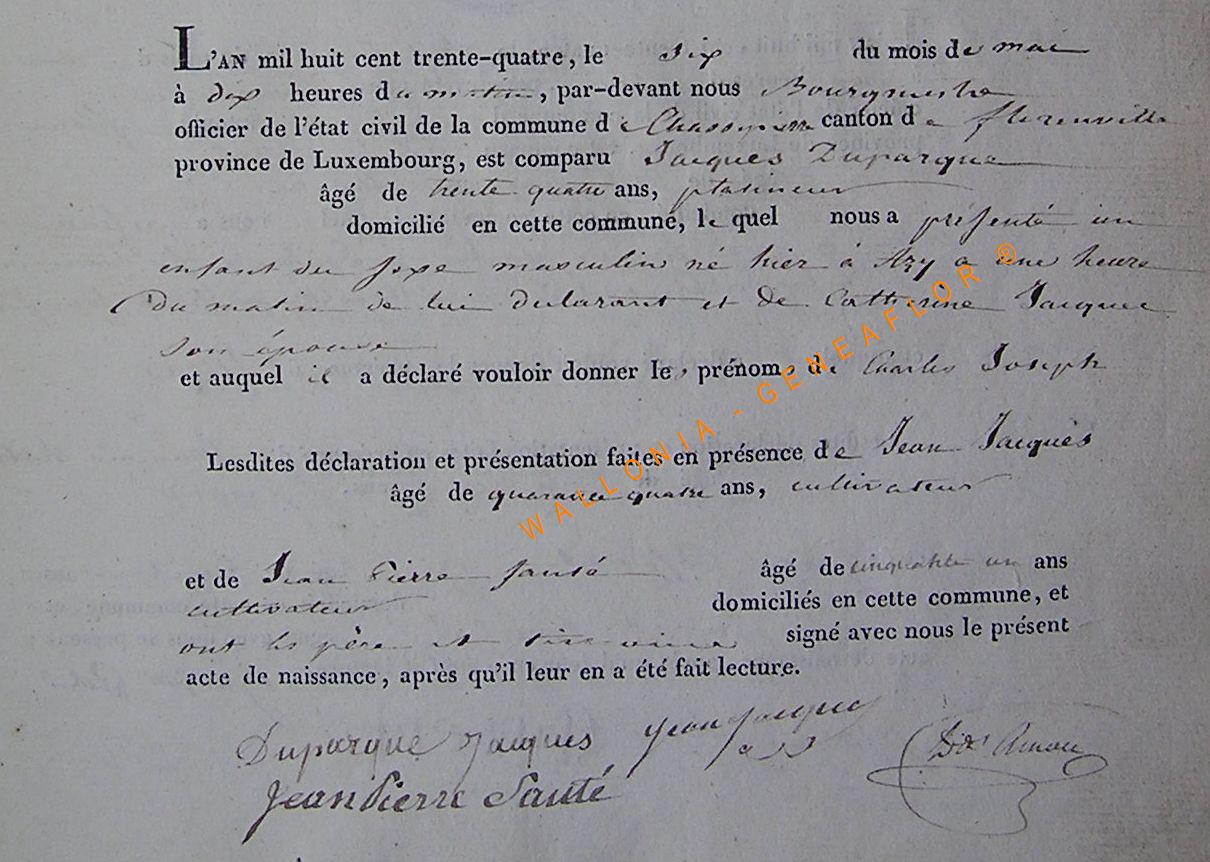 L'AN mil huit cent trente-quatre, le six du mois de mai
à dix heures du matin, par-devant nous Bourgmestre
officier de l'état civil de la commune de Chassepierre canton de florenville
province de Luxembourg, est comparu Jacques Duparque
âgé de trente quatre ans, platineur
domicilié en cette commune, le quel nous a présenté un
enfant du sexe masculin né hier à Azy a une heure
du matin de lui déclarant et de Catherine Jacques
son épouse
et auquel il a déclaré vouloir donner les prénoms de Charles Joseph
Lesdites déclaration et présentation faites en présence de Jean Jacques
âgé de quarante quatre ans, cultivateur
et de Jean Pierre Santé âgé de cinquante un ans
cultivateur domiciliés en cette commune, et
ont les père et témoins signé avec nous le présent
acte de naissance, après qu'il leur en a été fait lecture.
Duparque Jacques Jean Jacques
Jean Pierre Santé
WALLONIA - GENEAFLOR ®